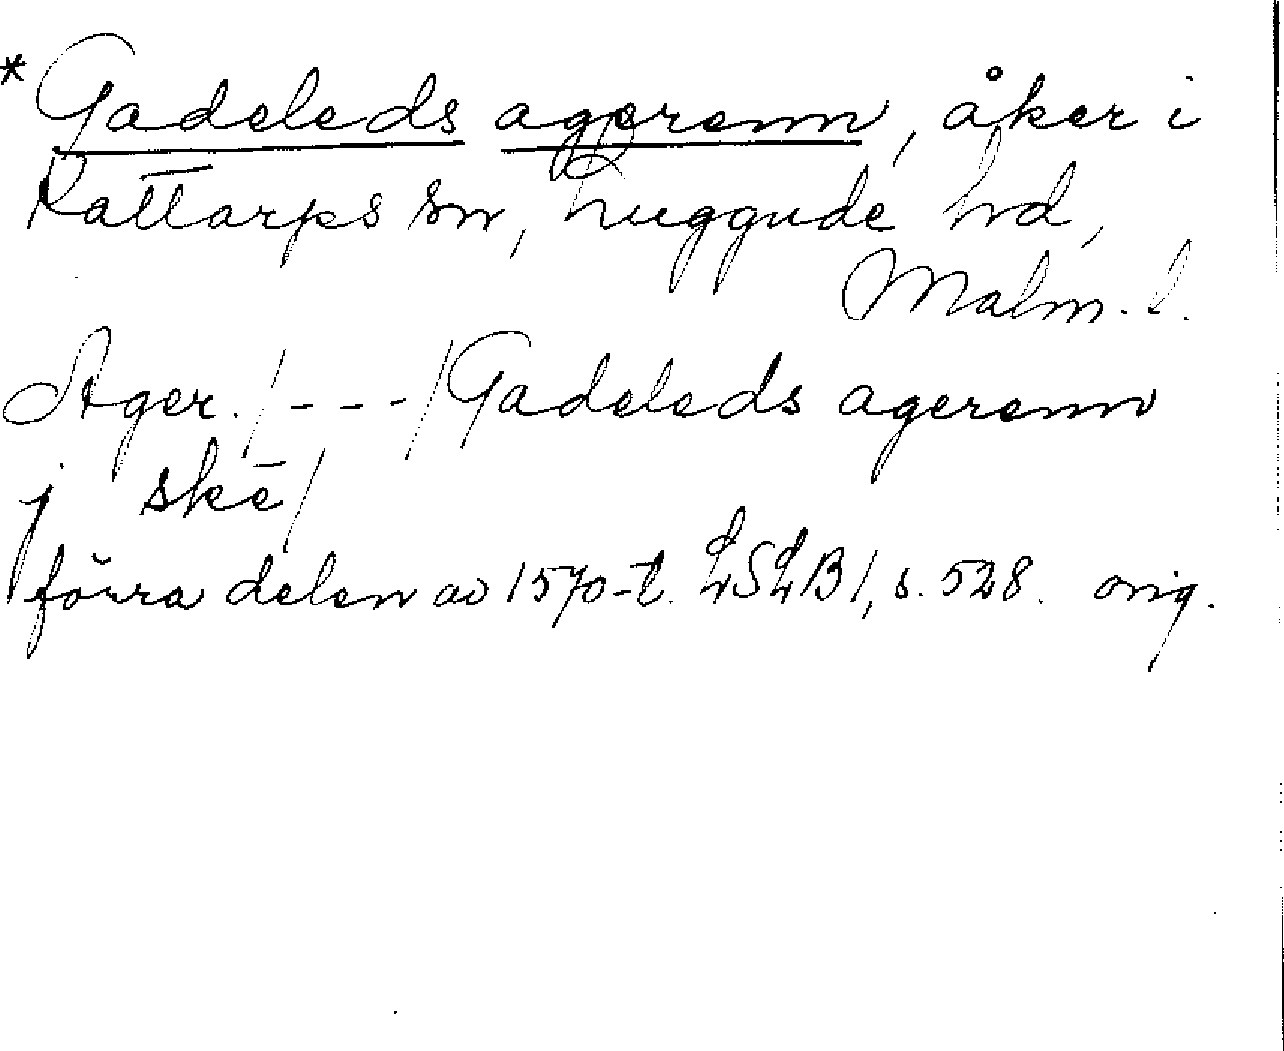 * Gadeleds agerenn, åker i
Kattarps sn, Luggude hd,
Malm. l.
Ager. /---/ Gadeleds agerenn
j skē/
förra delen av 1570-t. LSLB 1, s. 528. orig.